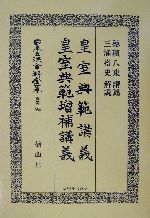 穗積八束 講述
三浦裕史 解説
皇室典範講義
皇室典範増補講義
日本立法資料全集
信山社